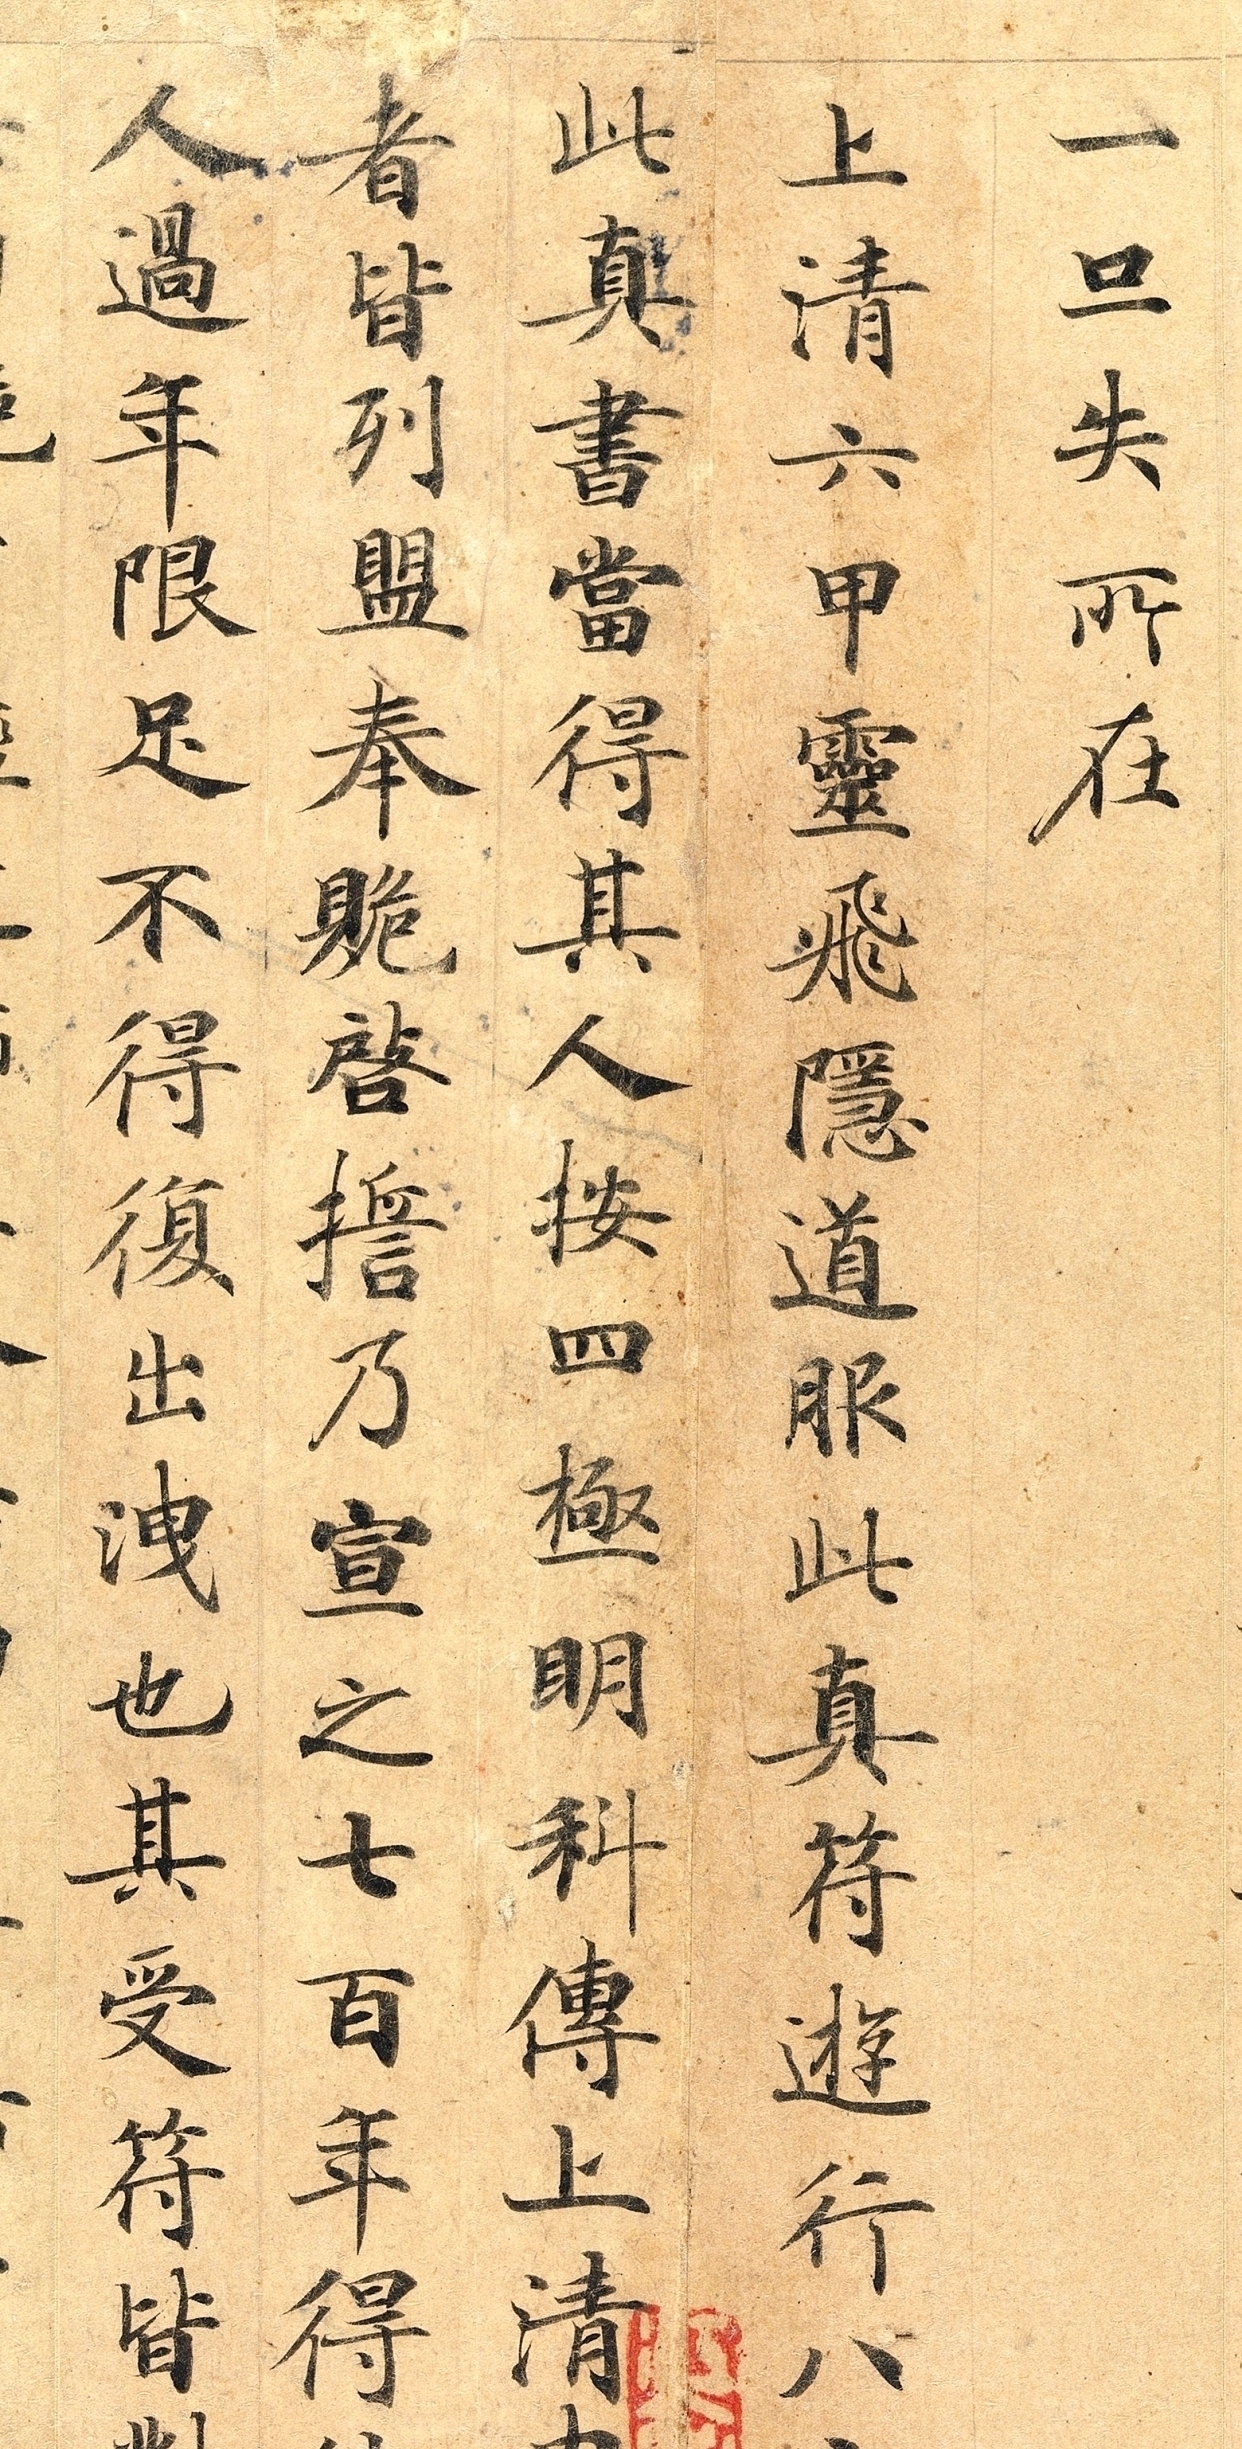 一旦失所在
上清六甲靈飛隱道服此真符遊行八
此真書當得其人按四極明科傳上清
者皆列盟奉贉啓擔乃宣之七百年得
人過年限足不得復出洩也其受符皆對